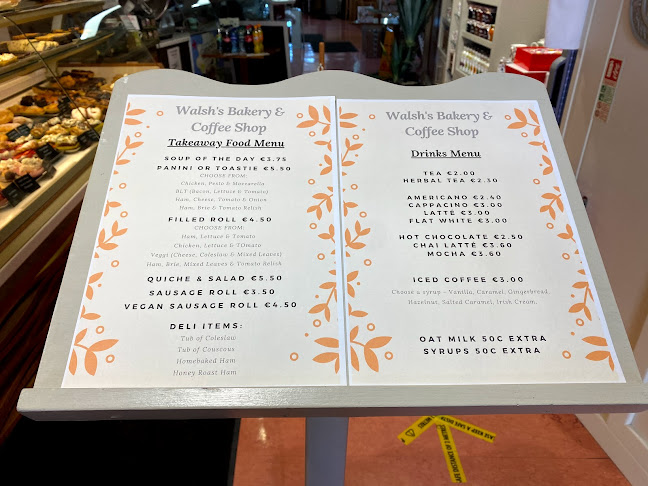 Walsh's Bakery &
Coffee Shop
Takeaway Food Menu
SOUP OF THE DAY €3.75
PANINI OR TOASTIE €5.50
CHOOSE FROM:
Chicken, Pesto & Mozzarella
BLT (Bacon, Lettuce & Tomato)
Ham, Cheese, Tomato & Onion
Ham, Brie & Tomato Relish
FILLED ROLL €4.50
CHOOSE FROM:
Ham, Lettuce & Tomato
Chicken, Lettuce & TOmato
Veggi (Cheese, Coleslaw & Mixed Leaves)
Ham, Brie, Mixed Leaves & Tomato Relish
QUICHE & SALAD €5.50
SAUSAGE ROLL €3.50
VEGAN SAUSAGE ROLL €4.50
DELI ITEMS:
Tub of Coleslaw
Tub of Couscous
Homebaked Ham
Honey Roast Ham
Walsh's Bakery &
Coffee Shop
Drinks Menu
TEA €2.00
HERBAL TEA €2.30
AMERICANO €2.40
CAPPACINO €3.00
LATTE €3.00
FLAT WHITE €3.00
HOT CHOCOLATE €2.50
CHAI LATTE €3.60
MOCHA €3.60
ICED COFFEE €3.00
Choose a syrup - Vanilla, Caramel, Gingerbread,
Hazelnut, Salted Caramel, Irish Cream.
OAT MILK 50C EXTRA
SYRUPS 50C EXTRA